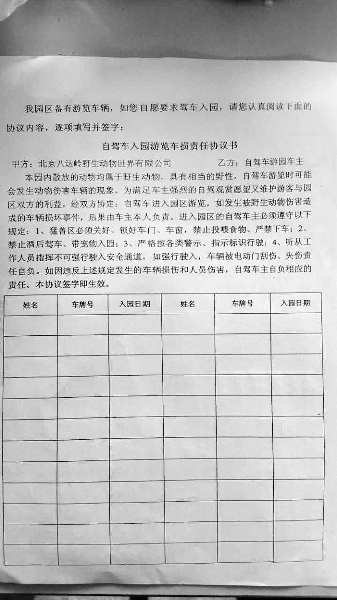 我园区备有游览车辆，如您自愿要求驾车入园，请您认真阅读下面的
协议内容，逐项填写并签字：
自驾车入园游览车损责任协议书
甲方：北京八达岭野生动物世界有限公司 乙方：自驾车游园车主
本园内散放的动物均属于野生动物，具有相当的野性，自驾车游览时可能
会发生动物伤害车辆的现象。为满足车主强烈的自驾观赏愿望又维护游客与园
区双方的利益，经双方协定：自驾车进入园区游览，如发生被野生动物伤害造
成的车辆损坏事件，后果由车主本人负责，进入园区的自驾车主必须遵守以下
规定：1、猛兽区必须关好、锁好车门、车窗，禁止投喂食物，严禁下车；2、
禁止酒后驾车、带宠物入园；3、严格按各类警示、指示标识行驶；4、听从工
作人员指挥不可强行驶入安全通道，如强行驶入，车辆被电动门刮伤、夹伤责
任自负。如因违反上述规定发生的车辆损伤和人员伤害，自驾车主自负相应的
责任、本协议签字即生效。
姓名 车牌号 入园日期 姓名 车牌号 入园日期